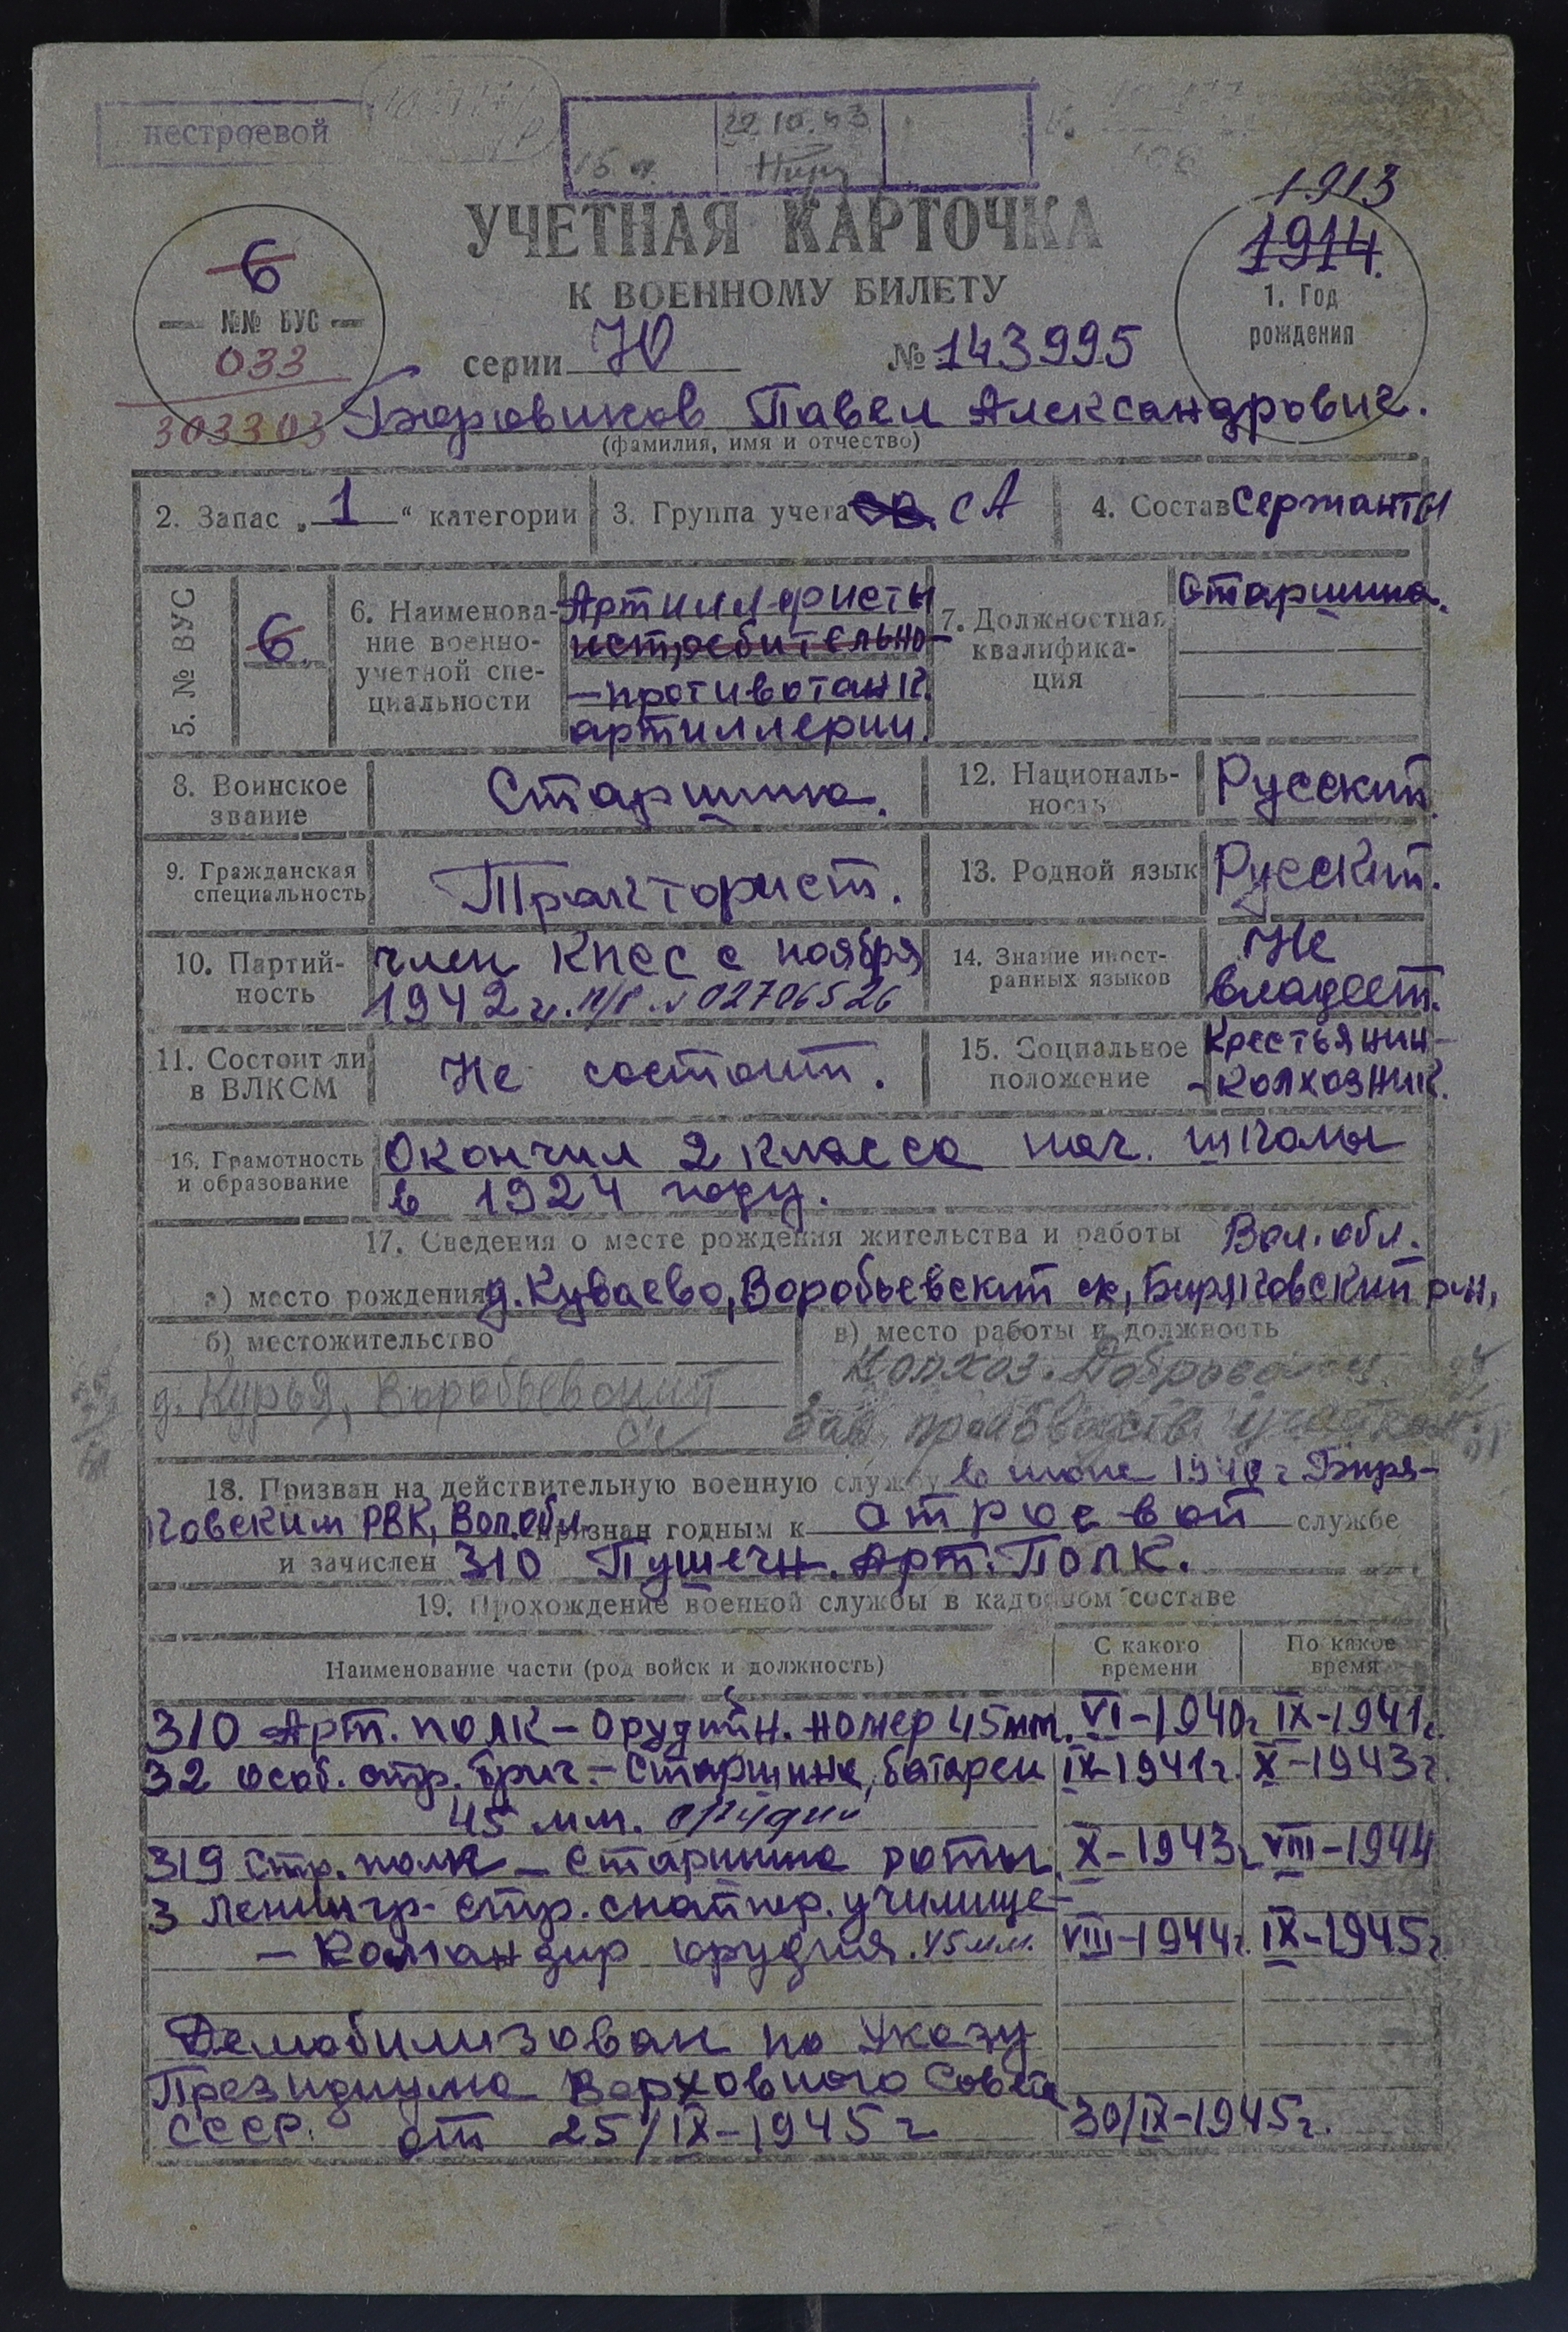 нестроевой
22.10.43
УЧЕТНАЯ КАРТОЧКА
К ВОЕННОМУ БИЛЕТУ
серии Ю № 143995
6
№№ ВУС
033
303303
1913
1914.
1. Год
рождения
Боровиков Павел Александрович.
(фамилия, имя и отчество)
2. Запас „1“ категории
3. Группа учета СА
4. Состав Сержанты
5. № ВУС
6.
6. Наименова-
ние военно-
учетной спе-
циальности
Артиллеристы
истребительно-
-противотанк.
артиллерии.
7. Должностная
квалифика-
ция
Старшина.
8. Воинское
звание
Старшина.
12. Националь-
ность
Русский.
9. Гражданская
специальность
Тракторист.
13. Родной язык
Русский.
10. Партий-
ность
член КПСС с ноября
1942 г. п/б. № 02706526
14. Знание иност-
ранных языков
Не
владеет.
11. Состоит ли
в ВЛКСМ
Не состоит.
15. Социальное
положение
Крестьянин-
-колхозник.
16. Грамотность
и образование
Окончил 2 класса нач. школы
в 1924 году.
17. Сведения о месте рождения жительства и работы Вол. обл.
а) место рождения д. Куваево, Воробьевский с/с, Биряковский р-н,
б) местожительство
д. Курья, Воробьевский
с/с
в) место работы и должность
Колхоз. Доброволец
Зав. производств. участком
18. Призван на действительную военную службу в июне 1940 г Биря-
ковским РВК, Вол. обл. признан годным к строевой службе
и зачислен 310 Пушечн. Арт. Полк.
19. Прохождение военной службы в кадровом составе
Наименование части (род войск и должность)
С какого
времени
По какое
время
310 Арт. полк – Орудийн. номер 45мм. VI-1940г IX-1941г.
32 особ. стр. бриг. – Старшина, батареи IX-1941г. X-1943г.
45 мм. орудий
319 стр. полк – Старшина роты. X-1943г VIII-1944
3 Ленингр. стр. снайпер. училище-
– Командир орудия. 45мм. VIII-1944г. IX-1945г.
Демобилизован по Указу
Президиума Верховного Совета
СССР. от 25/IX-1945г 30/IX-1945г.